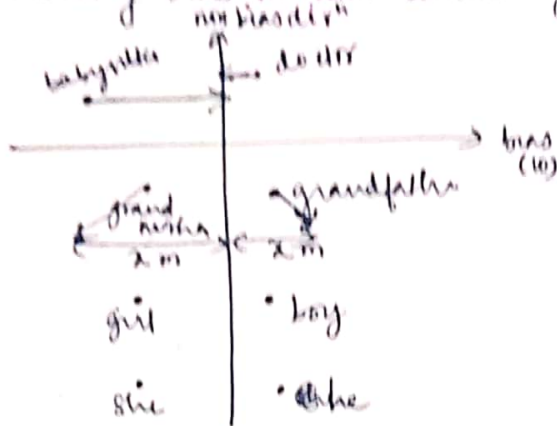 non bias dirⁿ
babysitter
doctor
bias
(1D)
grandfather
grand
x m
x m
girl
boy
she
he